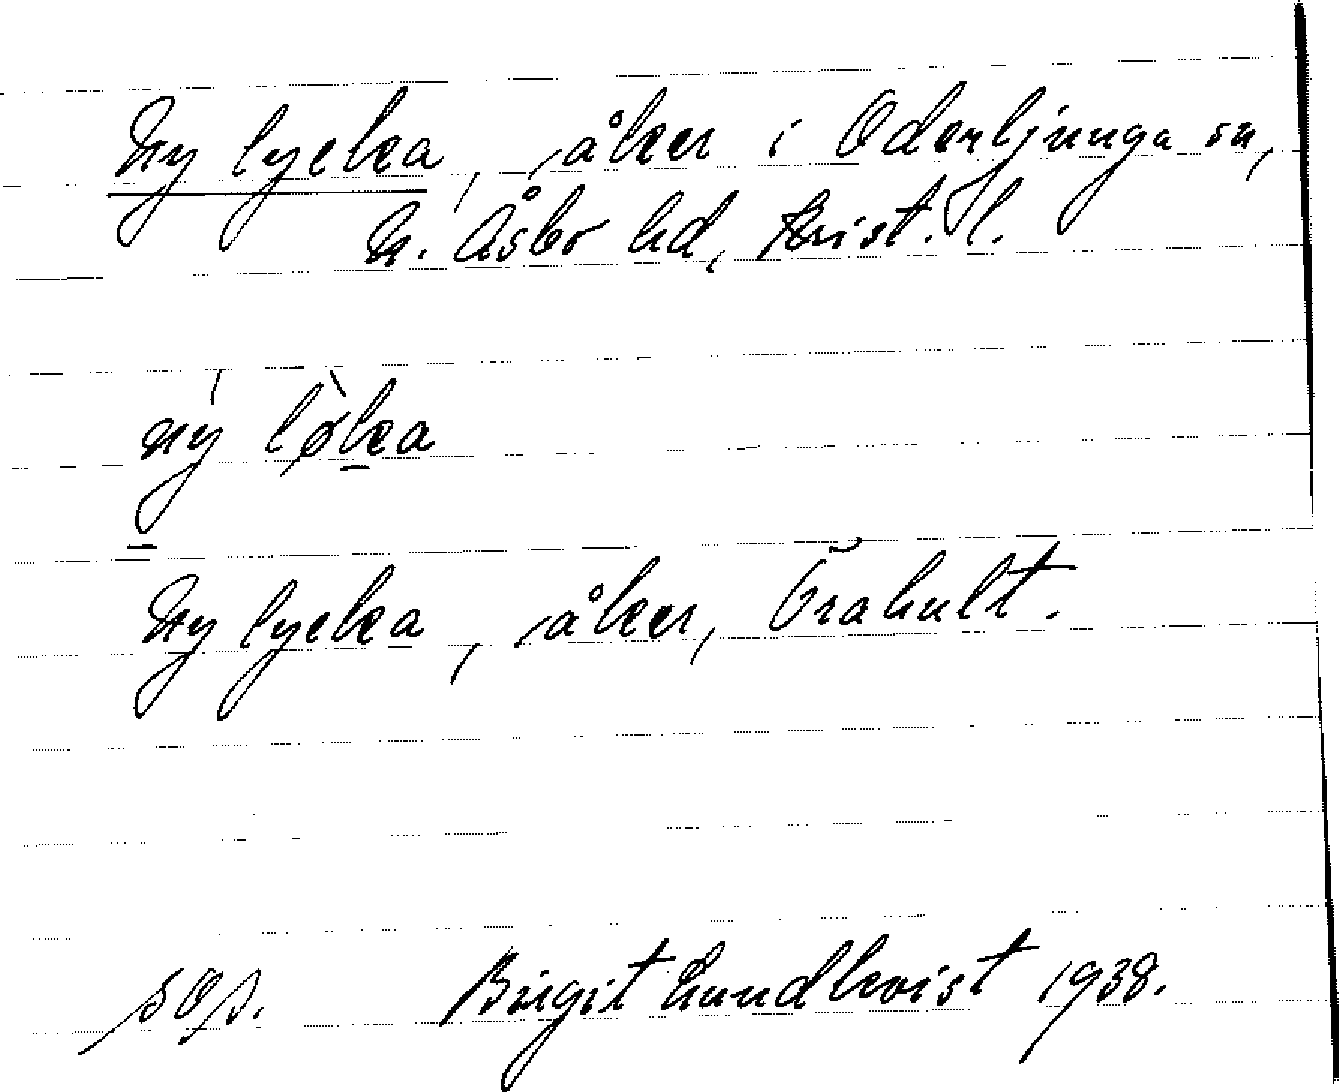 Ny lycka, åker i Oderljunga sn,
N. Åsbo hd, Krist. l.
ny løka
Ny lycka, åker, Örahult.
Birgit Lundkvist 1938.